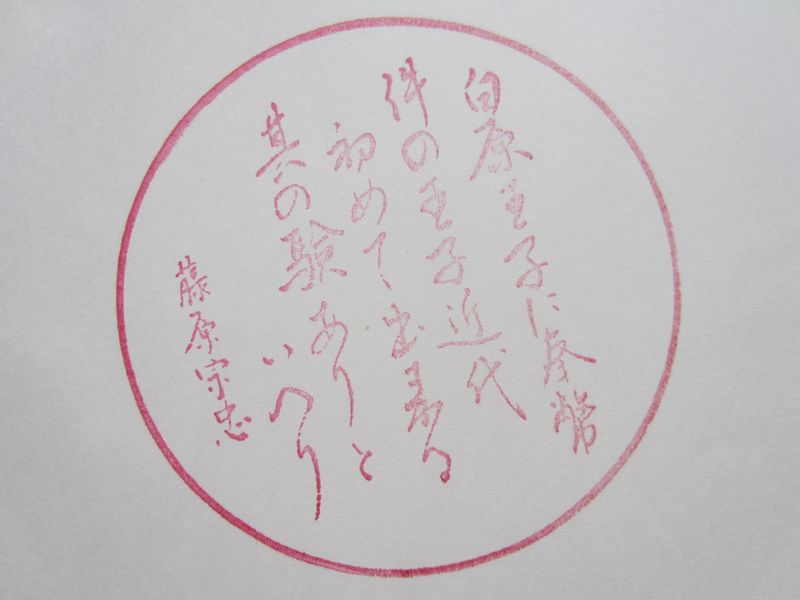 白原王子に奉幣
件の王子近代
初めて出来る
其の験ありと
いへり
藤原宗忠